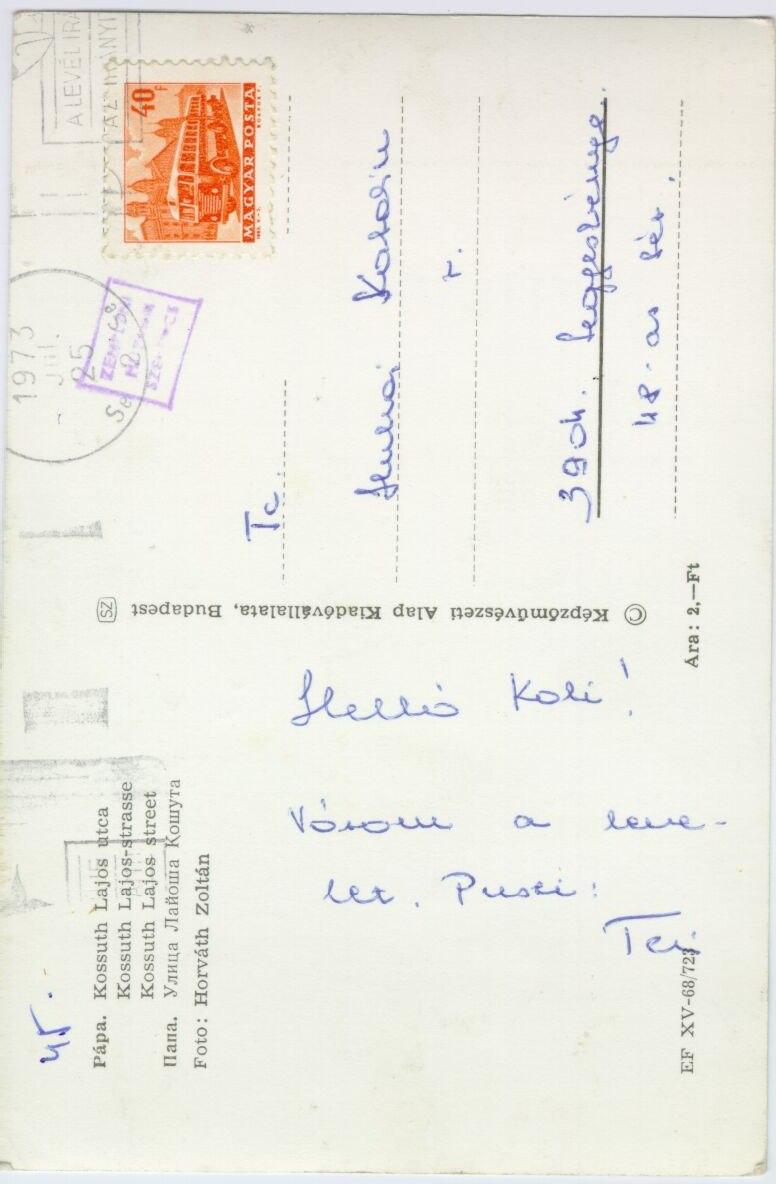 45.
Pápa. Kossuth Lajos utca
Kossuth Lajos-strasse
Kossuth Lajos street
Папа. Улица Лайоша Кошута
Foto: Horváth Zoltán
Helló Kati!
Várom a leve-
let. Puszi:
Teri
EF XV-68/723
© Képzőművészeti Alap Kiadóvállalata, Budapest
SZ
Ára: 2,—Ft
A LEVÉLIRÁ
1973
JÚL.
25
40 f
MAGYAR POSTA
Katalin
r.
3904. Legyesbénye.
48-as tér.